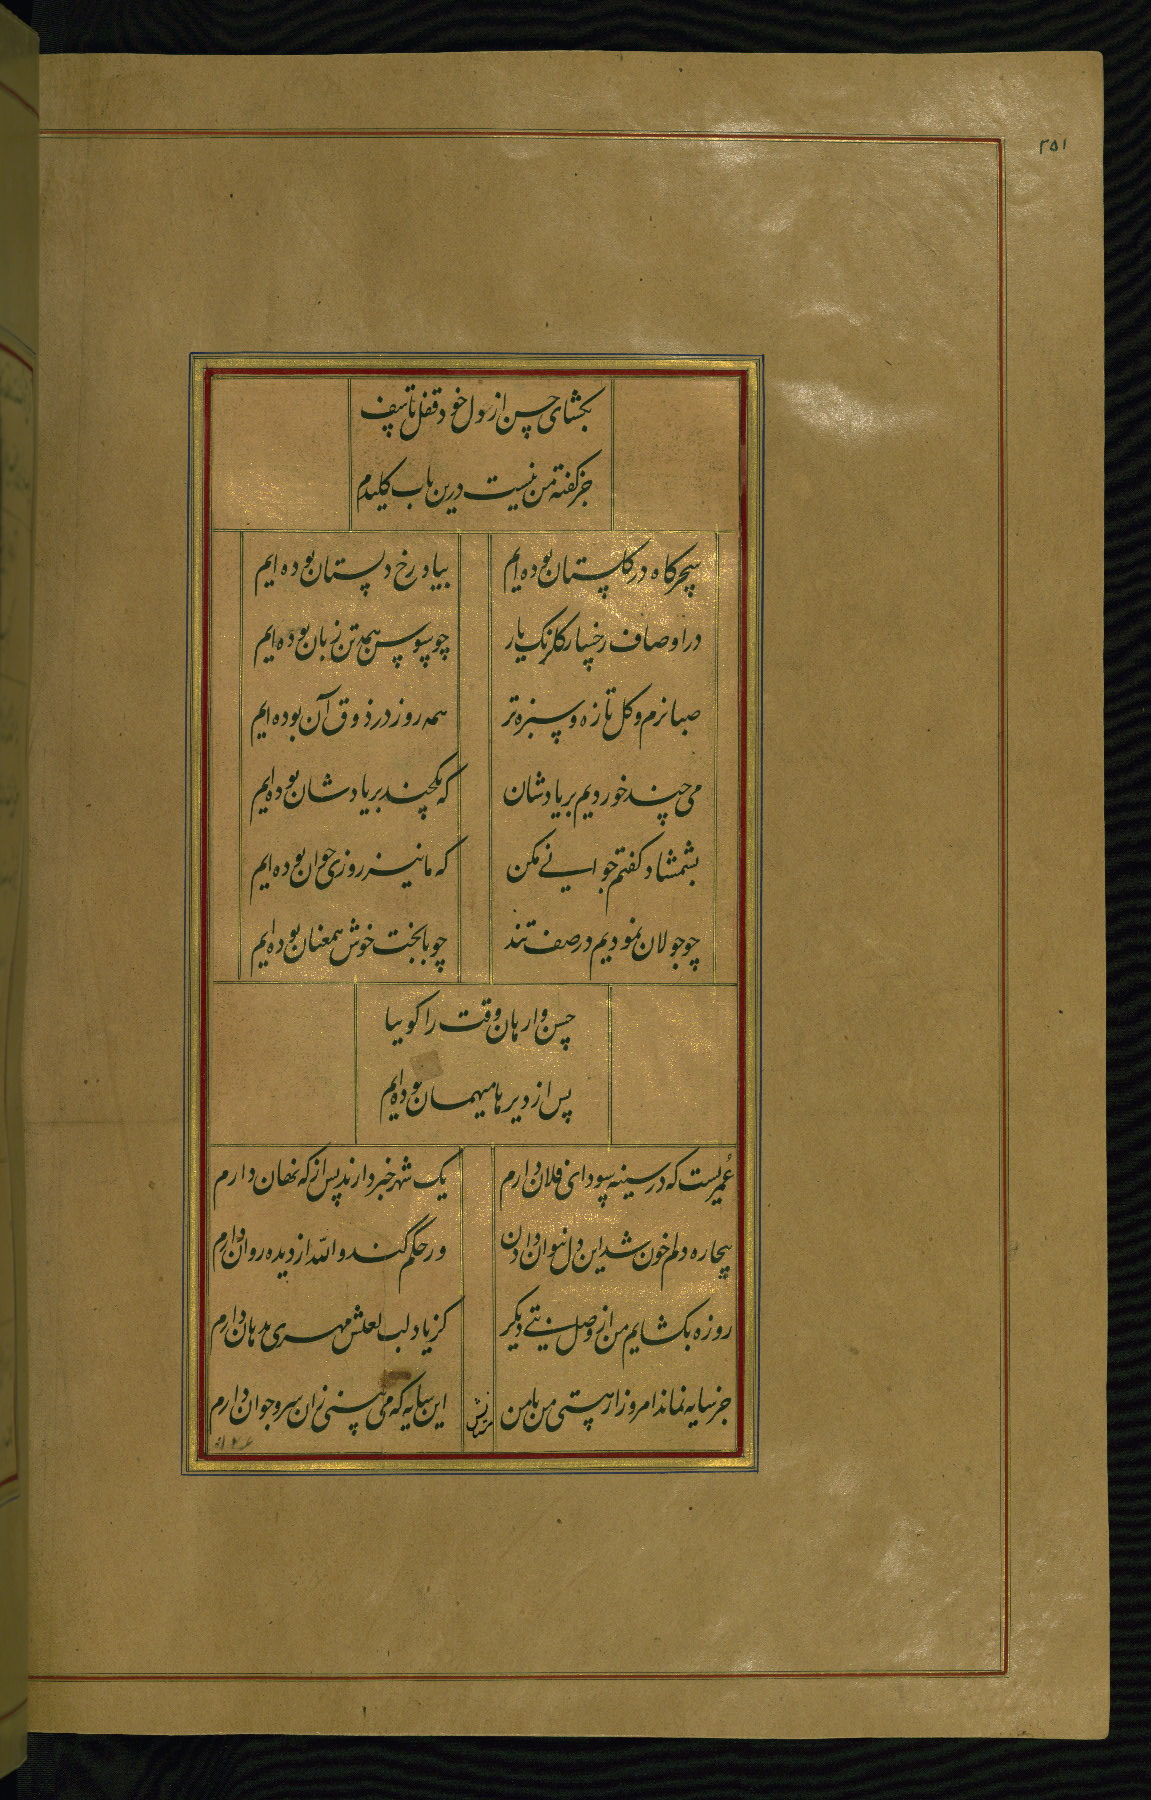 ۲۵۱
بکشای حسن از دل خود قفل تاسف
جز کفته من نیست درین باب کلیدم
سحرکاه در کلستان بوده ایم
بیاد رخ دلستان بوده ایم
در اوصاف رخسار کلرنک یار
چو سوسن همه تن زبان بوده ایم
صبا نرم و کل تازه و سبزه تر
همه روز در ذوق آن بوده ایم
می چند خوردیم بر یادشان
که یکچند بر یادشان بوده ایم
بشمشاد کفتم جوانی مکن
که ما نیز روزی جوان بوده ایم
چو جولان نمودیم در صف تند
چو با بخت خوش همعنان بوده ایم
حسن وار هان وقت را کو بیا
پس از دیرها میهمان بوده ایم
عمریست که در سینه سودای فلان دارم
یک شهر خبر دارند پس از که نهان دارم
بیچاره دلم خون شد این دل نتوان دادن
ور حکم کند والله از دیده روان دارم
روزه بکشایم من از وصل بتی دیکر
کز یاد لب لعلش مهری بدهان دارم
جز سایه نماند امروز از هستی من با من
این سایه که می بینی زان سرو جوان دارم